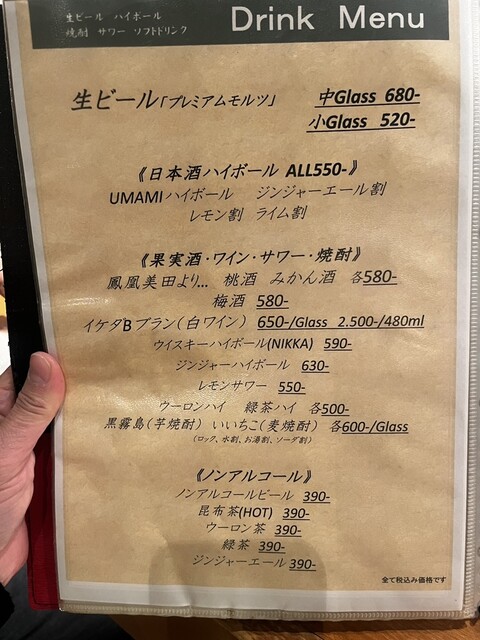 生ビール ハイボール
焼酎 サワー ソフトドリンク
Drink Menu
生ビール「プレミアムモルツ」 中Glass 680-
小Glass 520-
《日本酒ハイボール ALL550-》
UMAMIハイボール ジンジャーエール割
レモン割 ライム割
《果実酒・ワイン・サワー・焼酎》
鳳凰美田より… 桃酒 みかん酒 各580-
梅酒 580-
イケダBブラン(白ワイン) 650-/Glass 2.500-/480ml
ウイスキーハイボール(NIKKA) 590-
ジンジャーハイボール 630-
レモンサワー 550-
ウーロンハイ 緑茶ハイ 各500-
黒霧島(芋焼酎) いいちこ(麦焼酎) 各600-/Glass
(ロック、水割、お湯割、ソーダ割)
《ノンアルコール》
ノンアルコールビール 390-
昆布茶(HOT) 390-
ウーロン茶 390-
緑茶 390-
ジンジャーエール 390-
全て税込み価格です